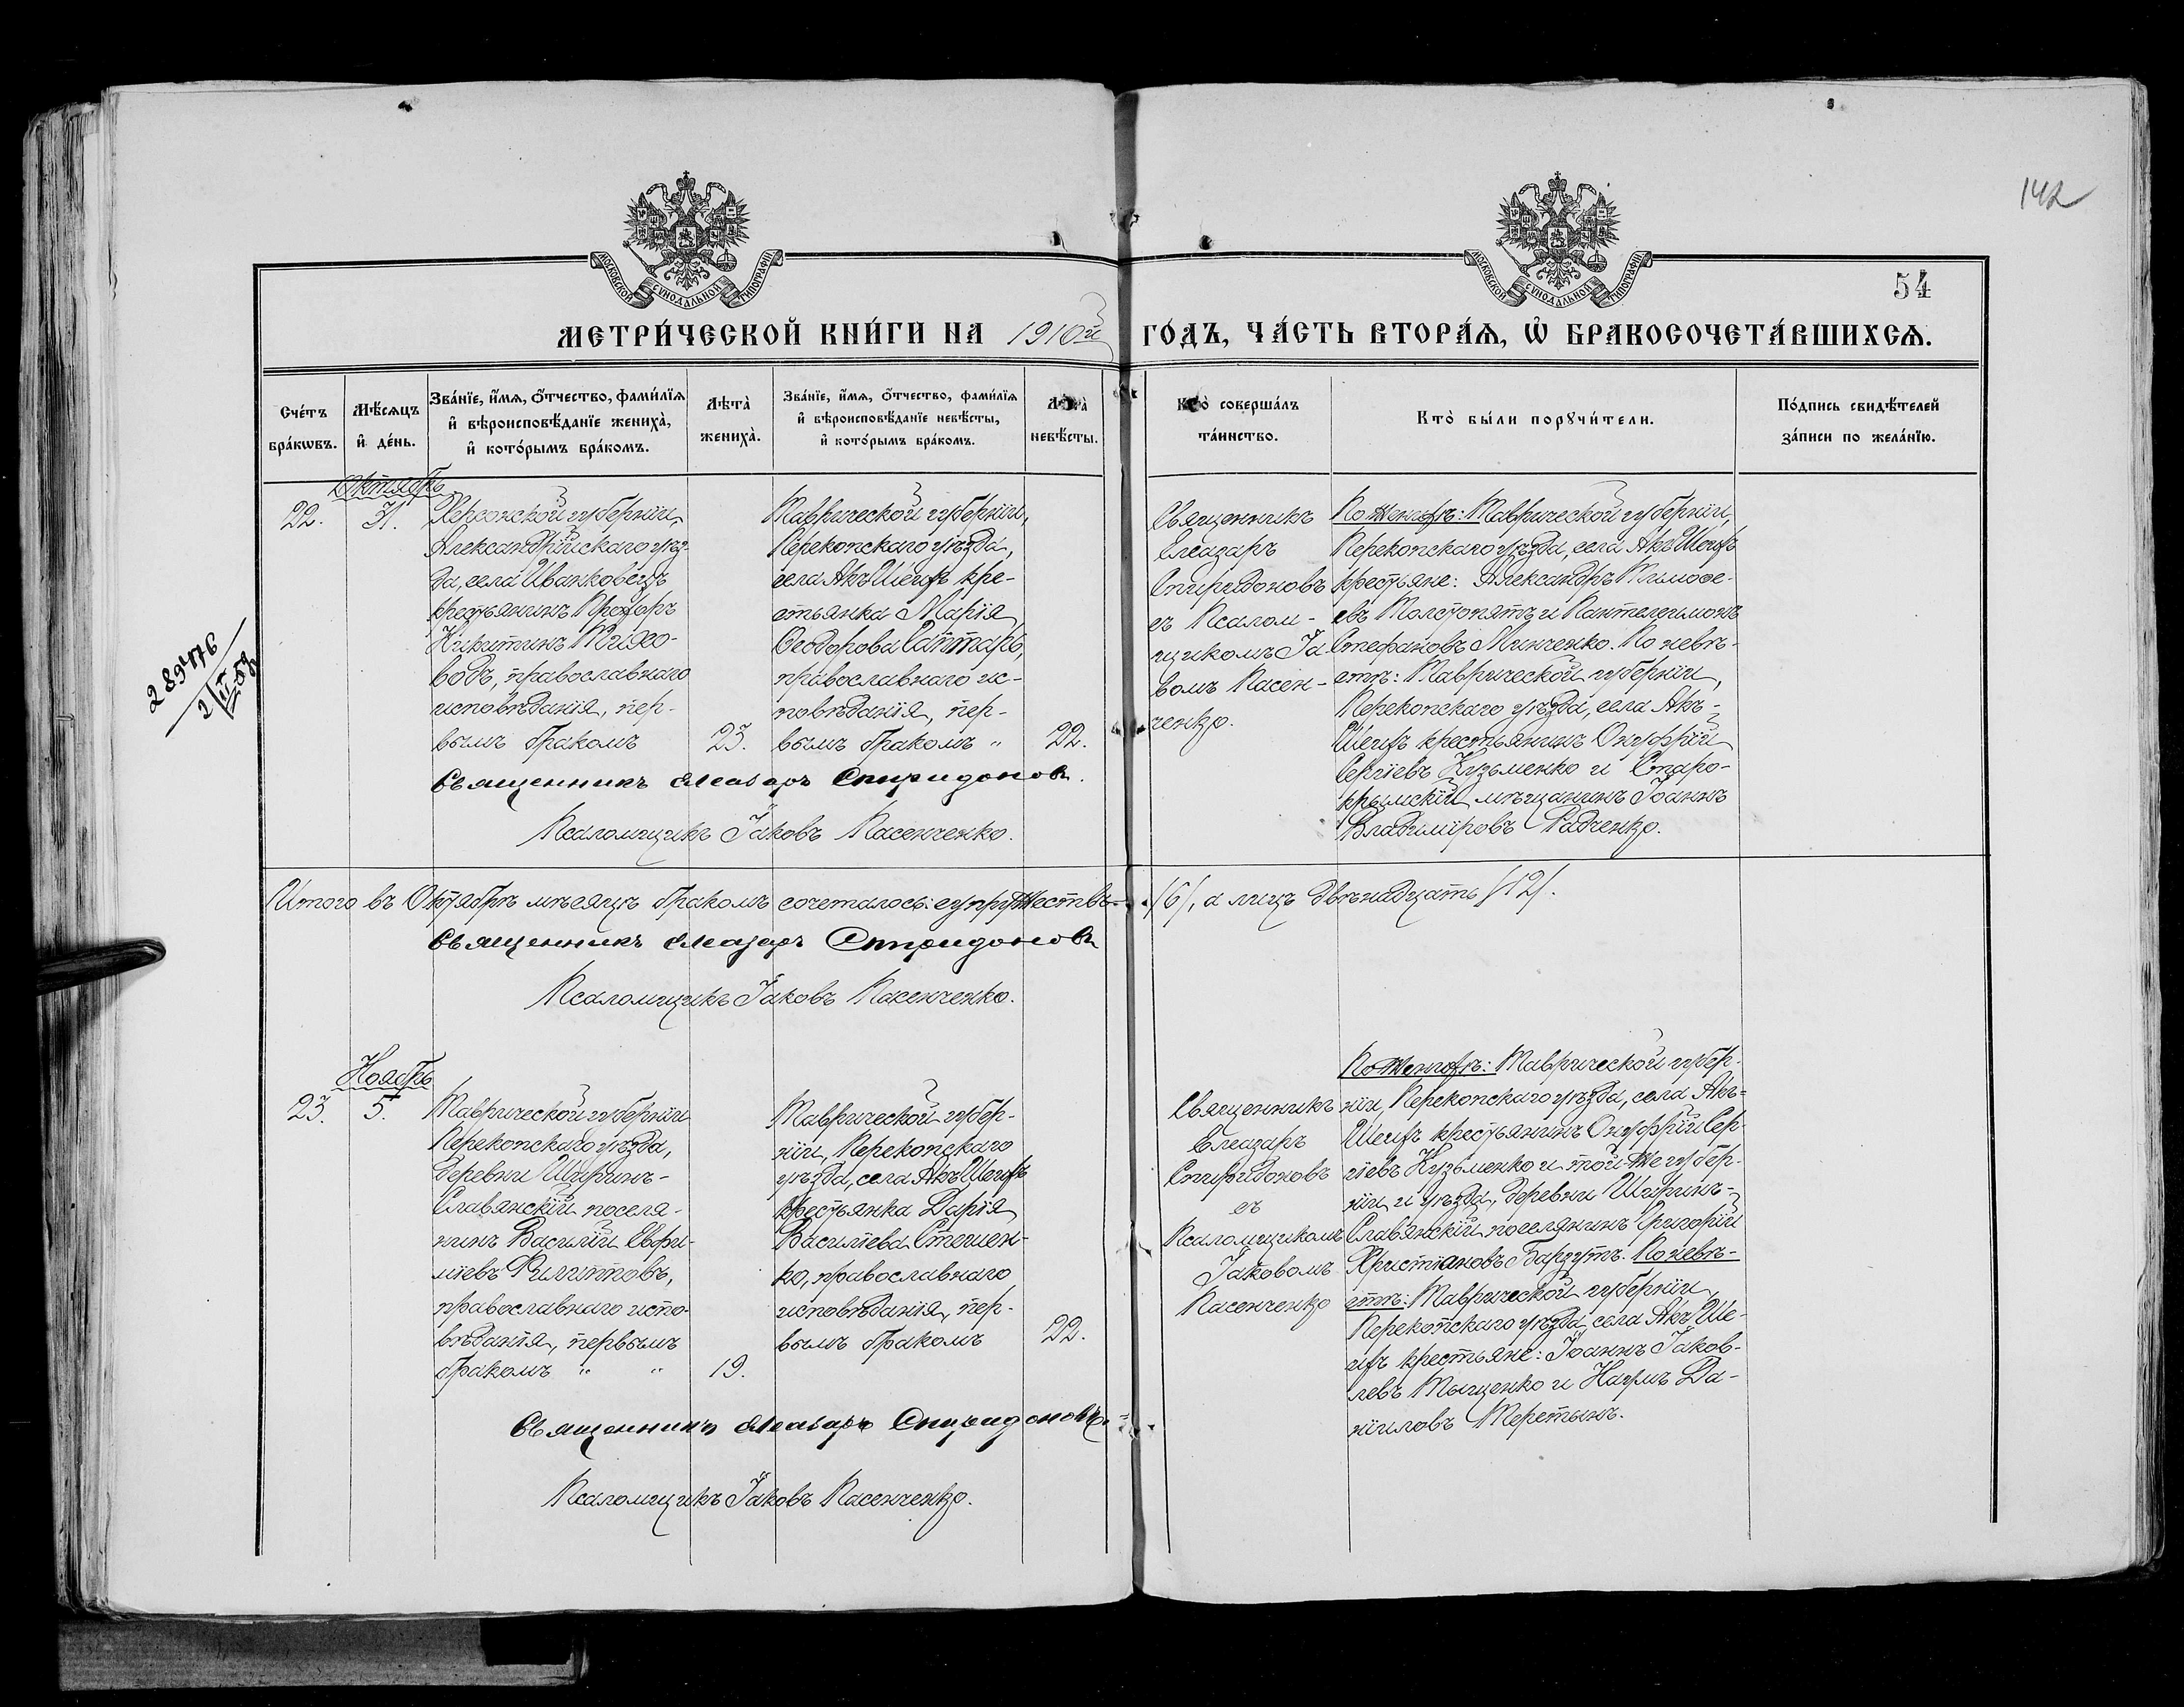 142
54
МОСКОВСКОЙ СѴНОДАЛЬНОЙ ТИПОГРАФІИ
МОСКОВСКОЙ СѴНОДАЛЬНОЙ ТИПОГРАФІИ
МЕТРИ́ЧЕСКОЙ КНИ́ГИ НА 1910й ГО́ДЪ, ЧА́СТЬ ВТОРА́Ѧ, Ѡ҆ БРАКОСОЧЕТА́ВШИХСѦ.
Сче́тъ
бра́кѡвъ.
Мѣ́сѧцъ
и҆ де́нь.
Зва́нїе, и҆́мѧ, ѻ҆́тчество, фами́лїѧ
и҆ вѣроисповѣ́данїе жениха̀,
и҆ кото́рымъ бра́комъ.
Лѣта̀
жениха̀.
Зва́нїе, и҆́мѧ, ѻ҆́тчество, фами́лїѧ
и҆ вѣроисповѣ́данїе невѣ́сты,
и҆ кото́рымъ бра́комъ.
Лѣта̀
невѣ́сты.
Кто̀ соверша́лъ
та́инство.
Кто̀ бы́ли порꙋчи́тели.
По́дпись свидѣ́телей
за́писи по жела́нїю.
Октябрь
22.
31.
Херсонской губерніи,
Александрійскаго уѣз-
да, села Иванковецъ
крестьянинъ Прохоръ
Никитинъ
водъ, православнаго
исповѣданія, пер-
вымъ бракомъ
23.
Таврической губерніи,
Перекопскаго уѣзда,
села Акъ Шеихъ кре-
стьянка Марія
Ѳеодорова
православнаго ис-
повѣданія, пер-
вымъ бракомъ "
22.
Священникъ
Елеазаръ
Спиридоновъ
съ Псалом-
щикомъ Іа-
вомъ Пасен-
ченко.
По женихѣ: Таврической губерніи,
Перекопскаго уѣзда, села Акъ Шеихъ
крестьяне: Александръ Тимоѳе-
евъ Толстопятъ и Пантелеимонъ
Стефановъ Минченко. По невѣ-
стѣ: Таврической губерніи,
Перекопскаго уѣзда, села Акъ-
Шеихъ крестьянинъ Онуфрій
Сергіевъ Кузьменко и Старо-
крымскій мѣщанинъ Іоаннъ
Владиміровъ Радченко.
Священникъ Елеазаръ Спиридоновъ.
Псаломщикъ Іаковъ Пасенченко.
289476
2/III-58
Итого въ Октябрѣ мѣсяцѣ бракомъ сочеталось: супружествъ /6/, а лицъ двѣнадцать /12/.
Священникъ Елеазаръ Спиридоновъ
Псаломщикъ Іаковъ Пасенченко.
Ноябрь
23.
5.
Таврической губерніи
Перекопскаго уѣзда,
деревни Ширинъ-
Славянскій поселя-
нинъ Василій Евфи-
міевъ Филипповъ,
православнаго испо-
вѣданія, первымъ
бракомъ " "
19.
Таврической губер-
ніи, Перекопскаго
уѣзда, села Акъ Шеихъ
крестьянка Дарія
Василіева Стешен-
ко, православнаго
исповѣданія, пер-
вымъ бракомъ
22.
Священникъ
Елеазаръ
Спиридоновъ
съ
Псаломщикомъ
Іаковомъ
Пасенченко
По женихѣ: Таврической губер-
ніи, Перекопскаго уѣзда, села Акъ-
Шеихъ крестьянинъ Онуфрій Сер-
гіевъ Кузьменко и той-же губер-
ніи и уѣзда, деревни Ширинъ-
Славянскій поселянинъ Григорій
Христіановъ. По невѣ-
стѣ: Таврической губерніи,
Перекопскаго уѣзда, села Акъ Ше-
ихъ крестьяне: Іоаннъ Іаков-
левъ Тыщенко и Наумъ Да-
ніиловъ
Священникъ Елеазаръ Спиридоновъ.
Псаломщикъ Іаковъ Пасенченко.